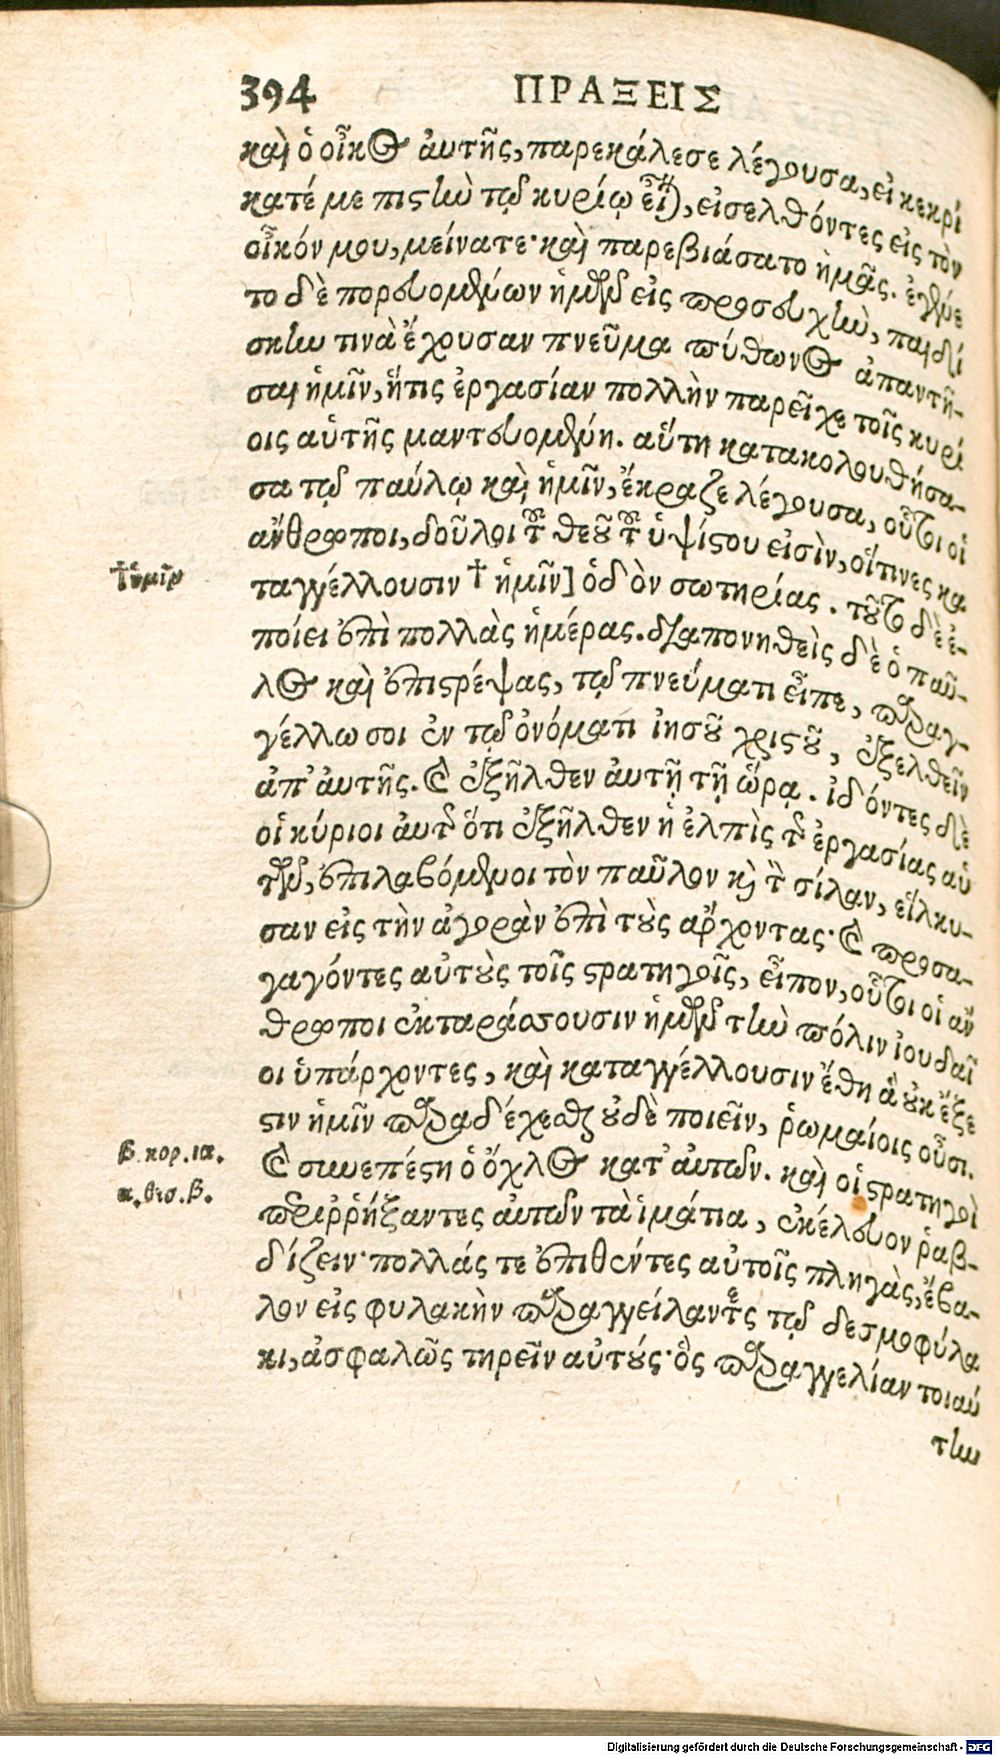 394 ΠΡΑΞΕΙΣ
καὶ ὁ οἶκος ἀυτῆς, παρεκάλεσε λέγουσα, εἰ κεκρί
κατέ με πιστὴν τῷ κυρίῳ εἶναι, εἰσελθόντες εἰς τὸν
οἶκόν μου, μείνατε· καὶ παρεβιάσατο ἡμᾶς. ἐγένε
το δὲ πορευομένων ἡμῶν εἰς προσευχὴν, παιδί
σκην τινὰ ἔχουσαν πνεῦμα πύθωνος ἀπαντῆ-
σαι ἡμῖν, ἥτις ἐργασίαν πολλὴν παρεῖχε τοῖς κυρί
οις αὑτῆς μαντευομένη. αὕτη κατακολουθήσα-
σα τῷ παύλῳ καὶ ἡμῖν, ἔκραζε λέγουσα, οὗτοι οἱ
ἄνθρωποι, δοῦλοι τοῦ θεοῦ τοῦ ὑψίστου εἰσὶν, οἵτινες κα
†ὑμῖν
ταγγέλλουσιν † ἡμῖν] ὁδὸν σωτηρίας. τοῦτο δὲ ἐ-
ποίει ἐπὶ πολλὰς ἡμέρας. διαπονηθεὶς δὲ ὁ παῦ-
λος καὶ ἐπιστρέψας, τῷ πνεύματι εἶπε, παραγ-
γέλλω σοι ἐν τῷ ὀνόματι ἰησοῦ χριστοῦ, ἐξελθεῖν
ἀπ' ἀυτῆς. καὶ ἐξῆλθεν ἀυτῇ τῇ ὥρᾳ. ἰδόντες δὲ
οἱ κύριοι ἀυτῆς ὅτι ἐξῆλθεν ἡ ἐλπὶς τῆς ἐργασίας αὑ
τῶν, ἐπιλαβόμενοι τὸν παῦλον καὶ τὸν σίλαν, εἵλκυ-
σαν εἰς τὴν ἀγορὰν ἐπὶ τοὺς ἄρχοντας· καὶ προσα-
γαγόντες αὐτοὺς τοῖς στρατηγοῖς, εἶπον, οὗτοι οἱ ἄν
θρωποι ἐκταράσσουσιν ἡμῶν τὴν πόλιν ἰουδαῖ
οι ὑπάρχοντες, καὶ καταγγέλλουσιν ἔθη ἃ οὐκ ἔξε
στιν ἡμῖν παραδέχεσθαι οὐδὲ ποιεῖν, ῥωμαίοις οὖσι.
β κορ. ια.
καὶ συνεπέστη ὁ ὄχλος κατ' ἀυτῶν. καὶ οἱ στρατηγοὶ
α. θεσ. β.
περιῤῥήξαντες ἀυτῶν τὰ ἱμάτια, ἐκέλευον ῥαβ-
δίζειν· πολλάς τε ἐπιθέντες αὐτοῖς πληγὰς, ἔβα-
λον εἰς φυλακὴν παραγγείλαντες τῷ δεσμοφύλα
κι, ἀσφαλῶς τηρεῖν αὐτούς· ὃς παραγγελίαν τοιαύ
την
Digitalisierung gefördert durch die Deutsche Forschungsgemeinschaft - DFG